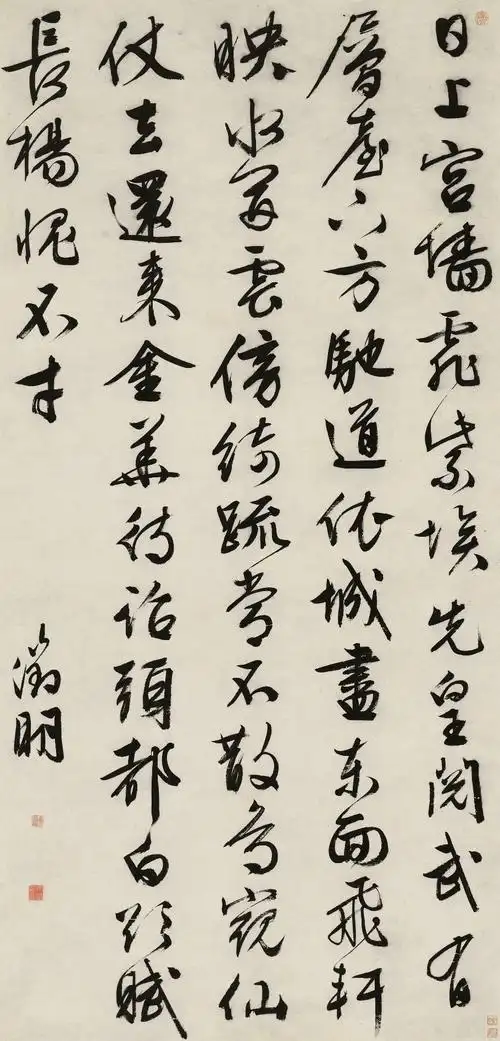 日上宫墙霏紫埃先皇阅武有
層臺下方馳道依城盡东面飛軒
映水開雲傍綺疏常不散鸟窺仙
仗去還来金华待诏頭都白欲賦
長楊愧不才
徵明